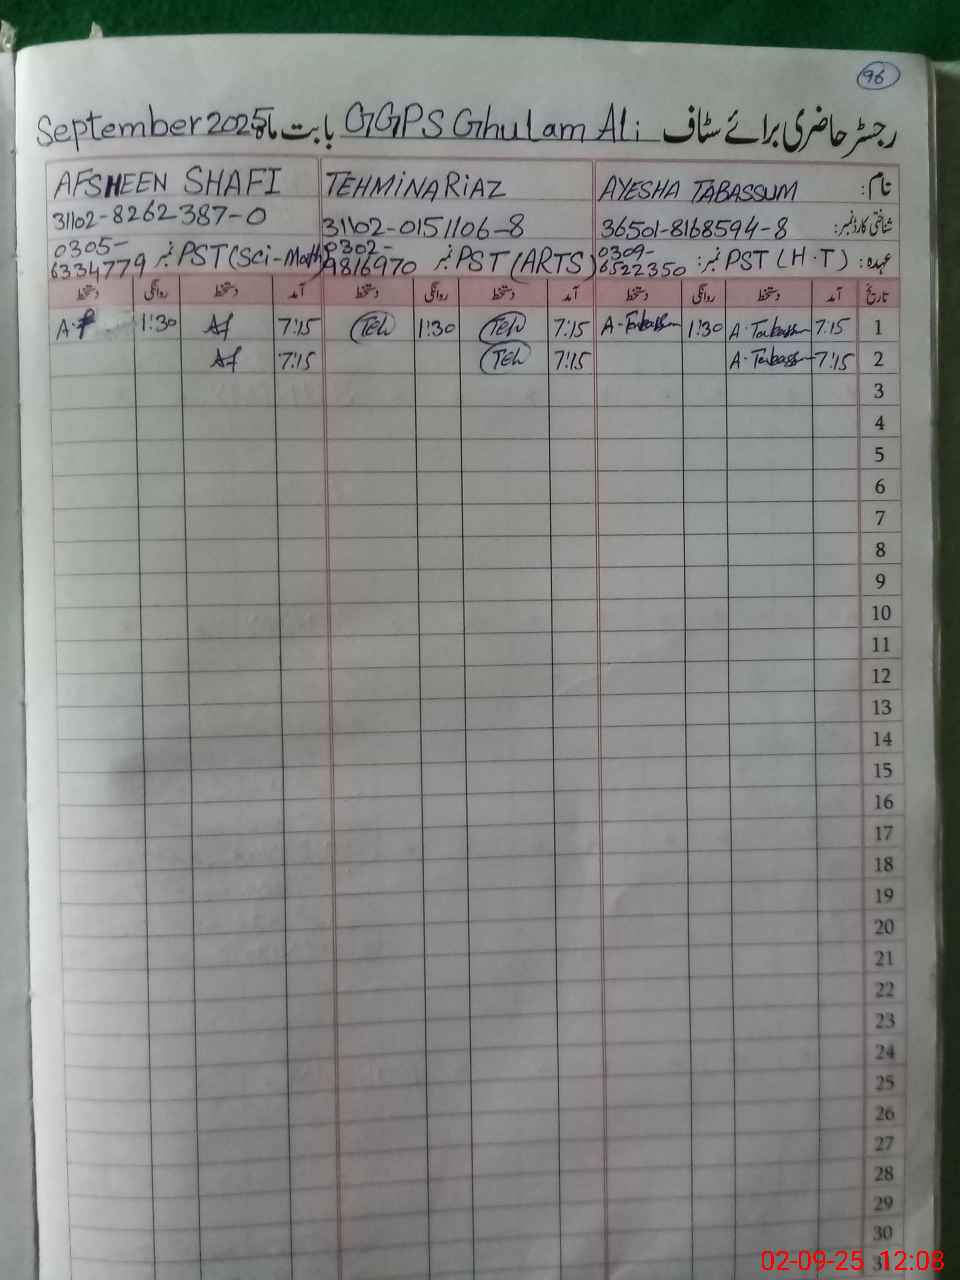 96
رجسٹر حاضری برائے سٹاف GGPS Ghulam Ali بابت ماہ September 2025
نام: AYESHA TABASSUM TEHMINA RIAZ AFSHEEN SHAFI
شناختی کارڈ نمبر: 36501-8168594-8 31102-0151106-8 31102-8262387-0
عہدہ: PST (H.T) نمبر: 0309-6522350 PST (ARTS) نمبر 0302-9816970 PST (Sci-Math) نمبر 0305-6334779
تاریخ آمد دستخط روانگی دستخط آمد دستخط روانگی دستخط آمد دستخط روانگی دستخط
1 7:15 A.Tabassum 1:30 A.Tabassum 7:15 Teh 1:30 Teh 7:15 Af 1:30 A.f
2 7:15 A.Tabassum 7:15 Teh 7:15 Af
3
4
5
6
7
8
9
10
11
12
13
14
15
16
17
18
19
20
21
22
23
24
25
26
27
28
29
30
31
02-09-25 12:08